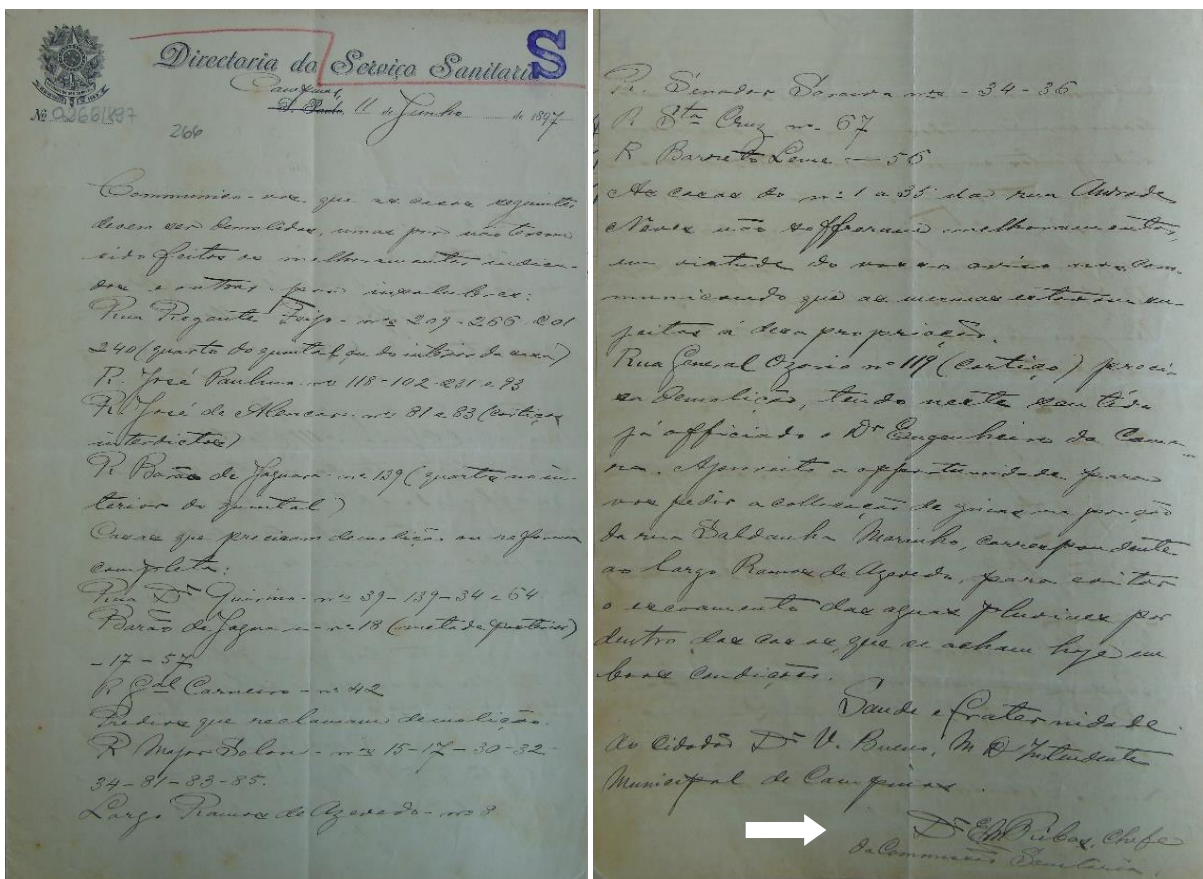 Directoria do Serviço Sanitario
S
Campinas,
S. Paulo, 11 de Junho de 1897
Nº 0266/897
266
Communico-vos que as casas seguintes
devem ser demolidas, umas por não terem
sido feitos os melhoramentos indica-
dos e outras por insalubres:
Rua Regente Feijó - nos 209 - 266
240 (quarto do quintal, ou do interior da casa)
R. José Paulino nos 118-102-231 e 93
R. José de Alencar nos 81 e 83 (cortiços
interdictos)
R Barão de Jaguara - no 139 (quartos no in-
terior do quintal)
Casas que precisam demolição ou reforma
completa:
Rua Dr Quirino - nos 39-139-34 e 64
Barão de Jaguara - no 18 (metade posterior)
- 17 - 57
R Gal Carneiro - no 42
Predios que reclamam demolição.
R Major Solon - nos 15-17-30-32-
34-81-83-85.
Largo Ramos de Azevedo - no 8
R. Senador Saraiva nos - 34-36
R Sta Cruz no - 67
R Barreto Leme - 56
As casas do no 1 a 35 da rua Andrade
Neves não soffreram melhoramentos,
em virtude do vosso aviso nos com-
municando que as mesmas estavam su-
jeitas á desapropriação.
Rua General Ozorio no 119 (cortiço) preci-
sa demolição, tendo neste sentido
já officiado o Dr Engenheiro da Cama-
ra. Aproveito a opportunidade para
vos pedir a collocação de guias na porção
da rua Saldanha Marinho, correspondente
ao largo Ramos de Azevedo, para evitar
o escoamento das aguas pluviaes por
dentro das casas, que se acham hoje em
boas condições.
Saude e fraternidade.
Ao cidadão Dr V. Bueno, M D Intendente
Municipal de Campinas.
Dr E M Ribas, Chefe
da Commissão Sanitaria.